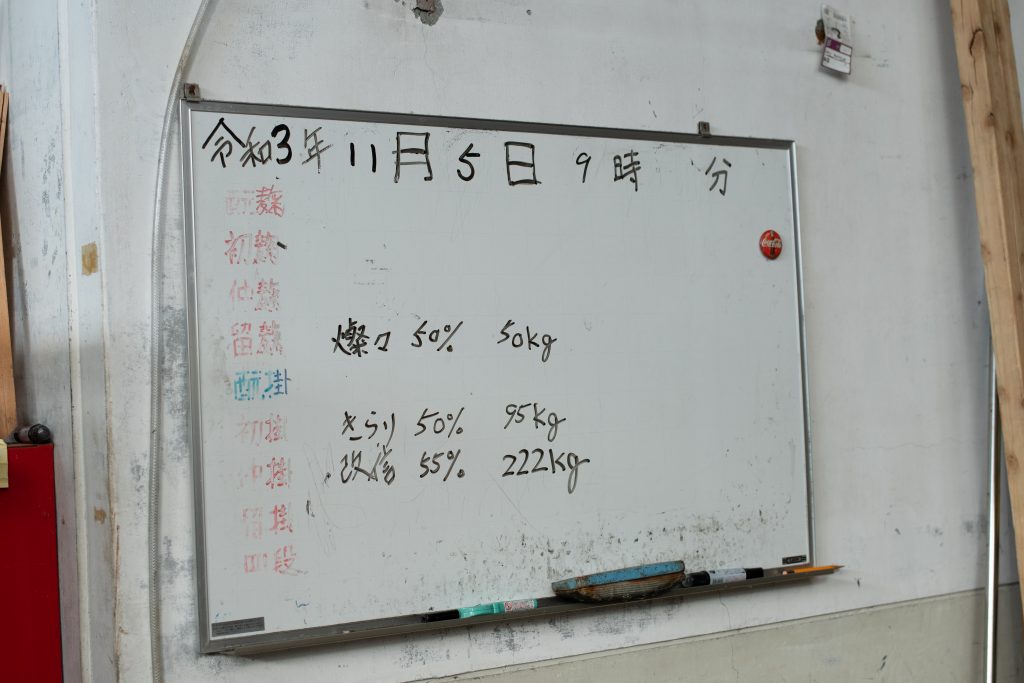 令和3年 11月5日 9時 分
酛麹
初麹
仲麹
留麹 燦々 50% 50kg
酛掛
初掛 きらり 50% 95kg
仲掛 改信 55% 222kg
留掛
四段
Coca-Cola